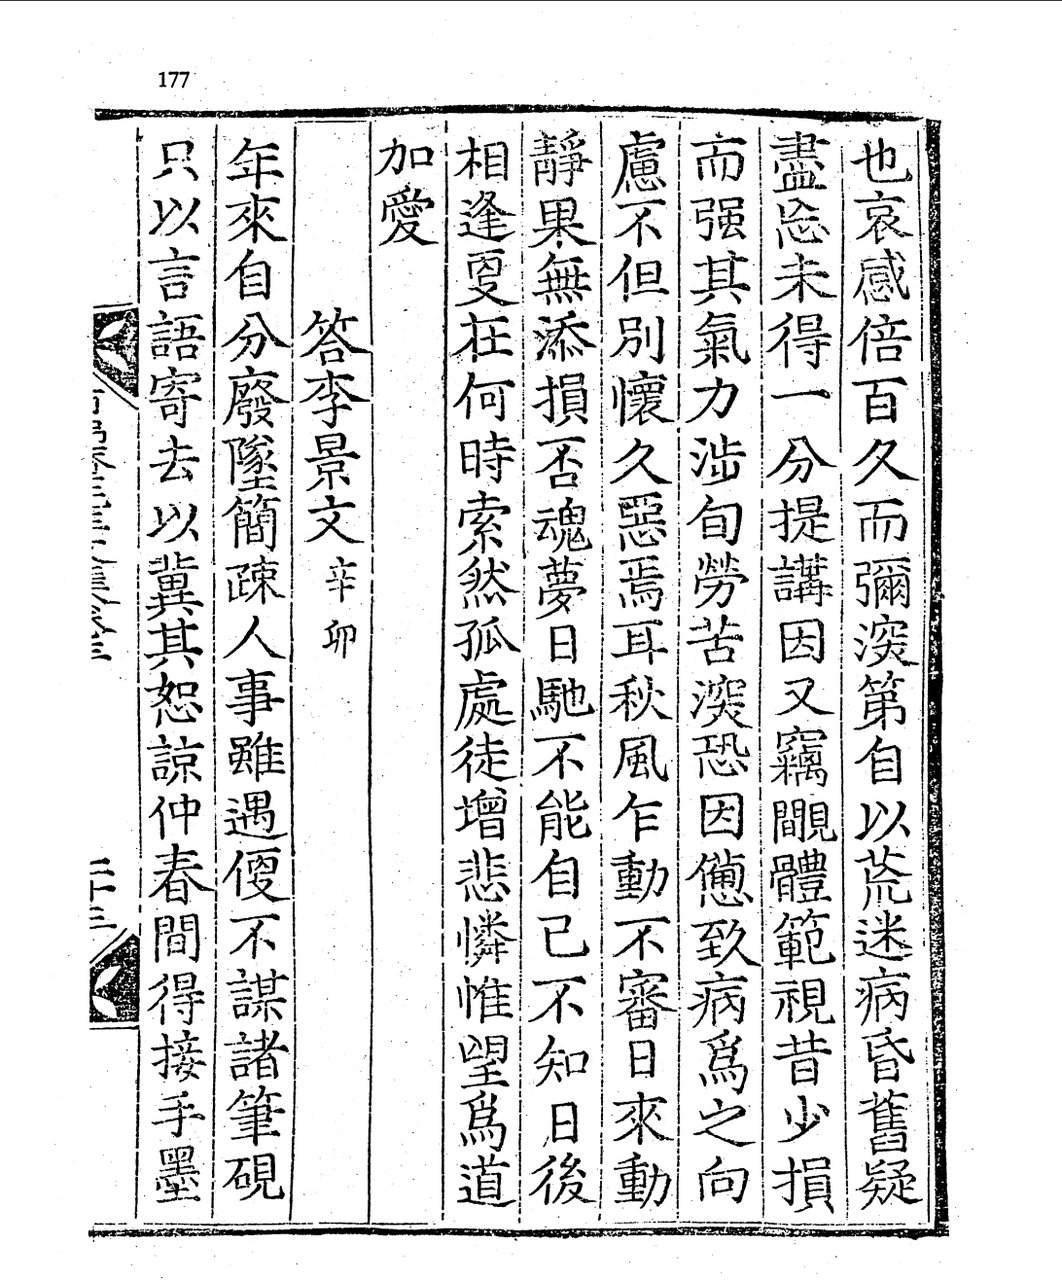 177
也哀感倍百久而彌深第自以荒迷病昏舊疑
盡忘未得一分提講因又竊覸體範視昔少損
而强其氣力涉旬勞苦深恐因憊致病爲之向
慮不但別懷久惡焉耳秋風乍動不審日來動
靜果無添損否魂夢日馳不能自已不知日後
相逢更在何時索然孤處徒增悲憐惟望爲道
加愛
答李景文 辛卯
年來自分廢墜簡疎人事雖遇便不謀諸筆硯
只以言語寄去以冀其恕諒仲春間得接手墨
二十三